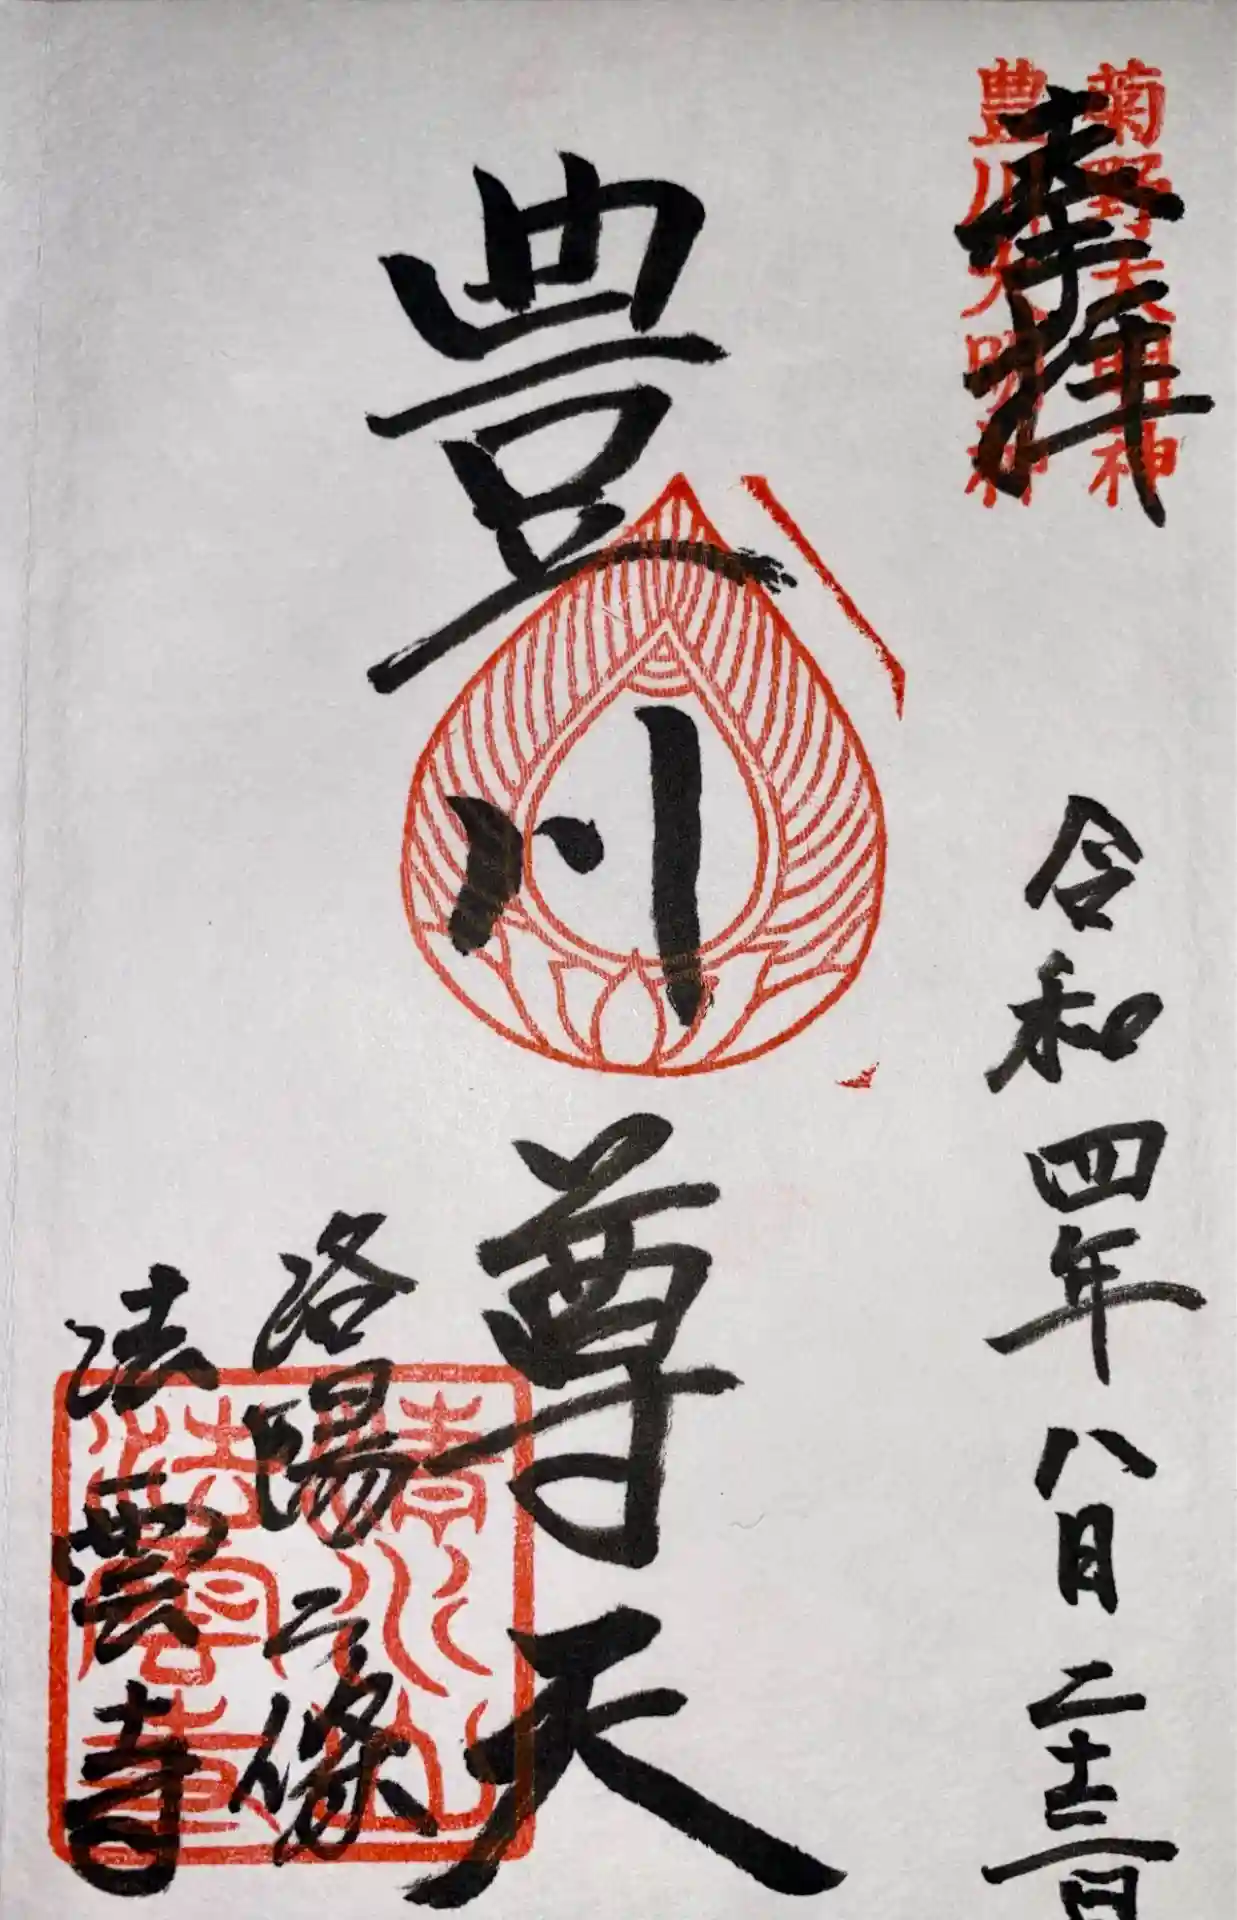 菊野大明神
豊川大明神
奉拝
令和四年八月二十三日
豊川尊天
洛陽二條
法雲寺
清水山